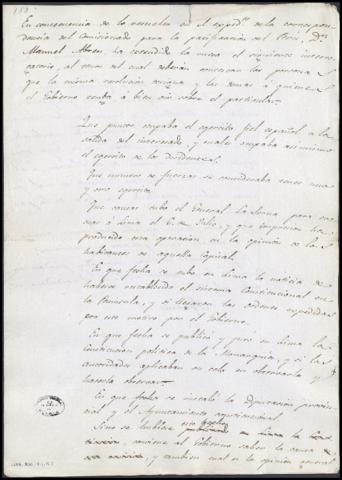 En consecuencia de lo resuelto en el exped.te de la correspon-
dencia del Comisionado para la pacificacion del Perú, D.n
Manuel Abreu ha extendido la mesa el siguiente interro-
gatorio, al tenor del cual deberán contestar las personas
que la misma resolucion designa y las demas á quienes
el Gobierno tenga á bien oir sobre el particular.
Que puntos ocupaba el egercito fiel español á la
salida del interesado, y cuales ocupaba asimismo
el egercito de la disidencia.
Que numero de fuerzas se consideraba tener uno
y otro egercito.
Que causas tubo el General La Serna para eva-
cuar á Lima el 6 de Julio, y que impresion ha
producido esta operacion en la opinion de los
habitantes de aquella Capital.
En que fecha se tubo en Lima la noticia de
haberse restablecido el sistema Constitucional en
la Peninsula, y si llegaron las ordenes expedidas
por este motivo por el Gobierno.
En que fecha se publicó y juró en Lima la
Constitucion politica de la Monarquia, y si las
autoridades aplicaban su celo en observarla y
hacerla observar.
En que fecha se instaló la Diputacion provin-
cial y el Ayuntamiento constitucional.
Sino se hubiese
publicado en Lima la Cons-
titucion, conviene al Gobierno saber la causa
y tambien cual es la opinion general